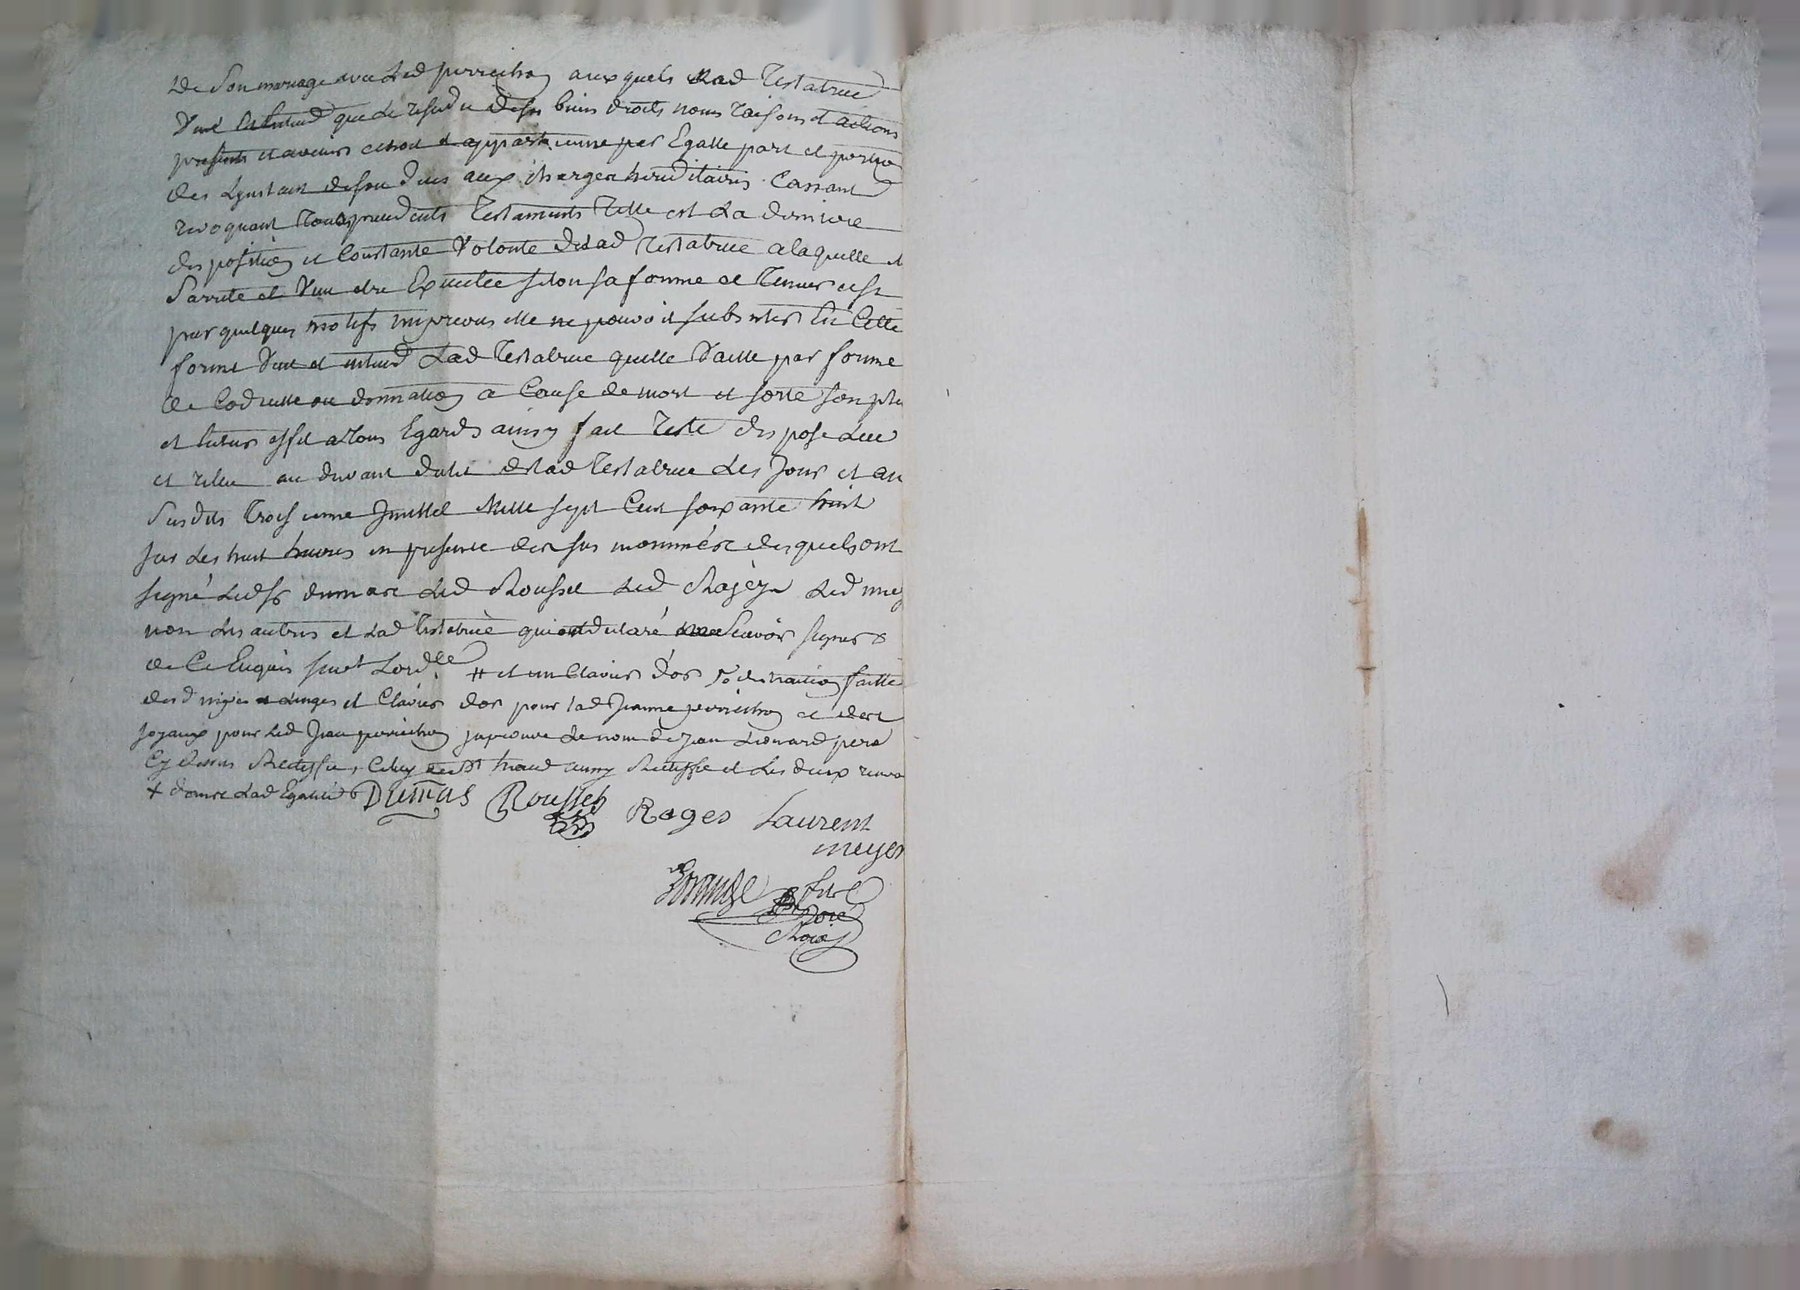 de son mariage avec led perrichon auxquels lad Testatrice
Veut et entend que le residu de ses biens droits noms raisons et actions
presents et avenirs et appartienne par Egalle part et portion
des Linstant de son deces aux charges hereditaires Cassant
revoquant Tous precedents Testaments Telle est La derniere
disposition et Constante Volonte de lad Testatrice a laquelle
Sarrete et Veut etre Executée selon sa forme et Teneur et si
par quelques motifs imprevus elle ne pouvoit subsister En Cette
forme Veut et entend Lad Testatrice quelle Vaille par forme
de Codicille ou donnation a Cause de mort et sorte son
et Entier effet a Tous Egards ainsy fait Testé disposé Leu
et releu au devant dulit de lad Testatrice Les Jour et an
Susdits Troisieme Juillet Mille sept Cent soixante huit
sur Les huit heures en presence des sus nommés desquels ont
signé Ledsr dumas Led Roussel Led Rogés Led
non Les autres et Lad Testatrice qui ont declaré ne Scavoir signer
de Ce Enquis suivt Lordce # et un Clavier dor
linges et Clavier dor pour lad Jeanne perrichon et des
Joyaux pour Led Jean perrichon japrouve Le nom de Jean Leonard
aussy et Les deux
+ Lad Dumas Roussel Roges Laurent
meyer